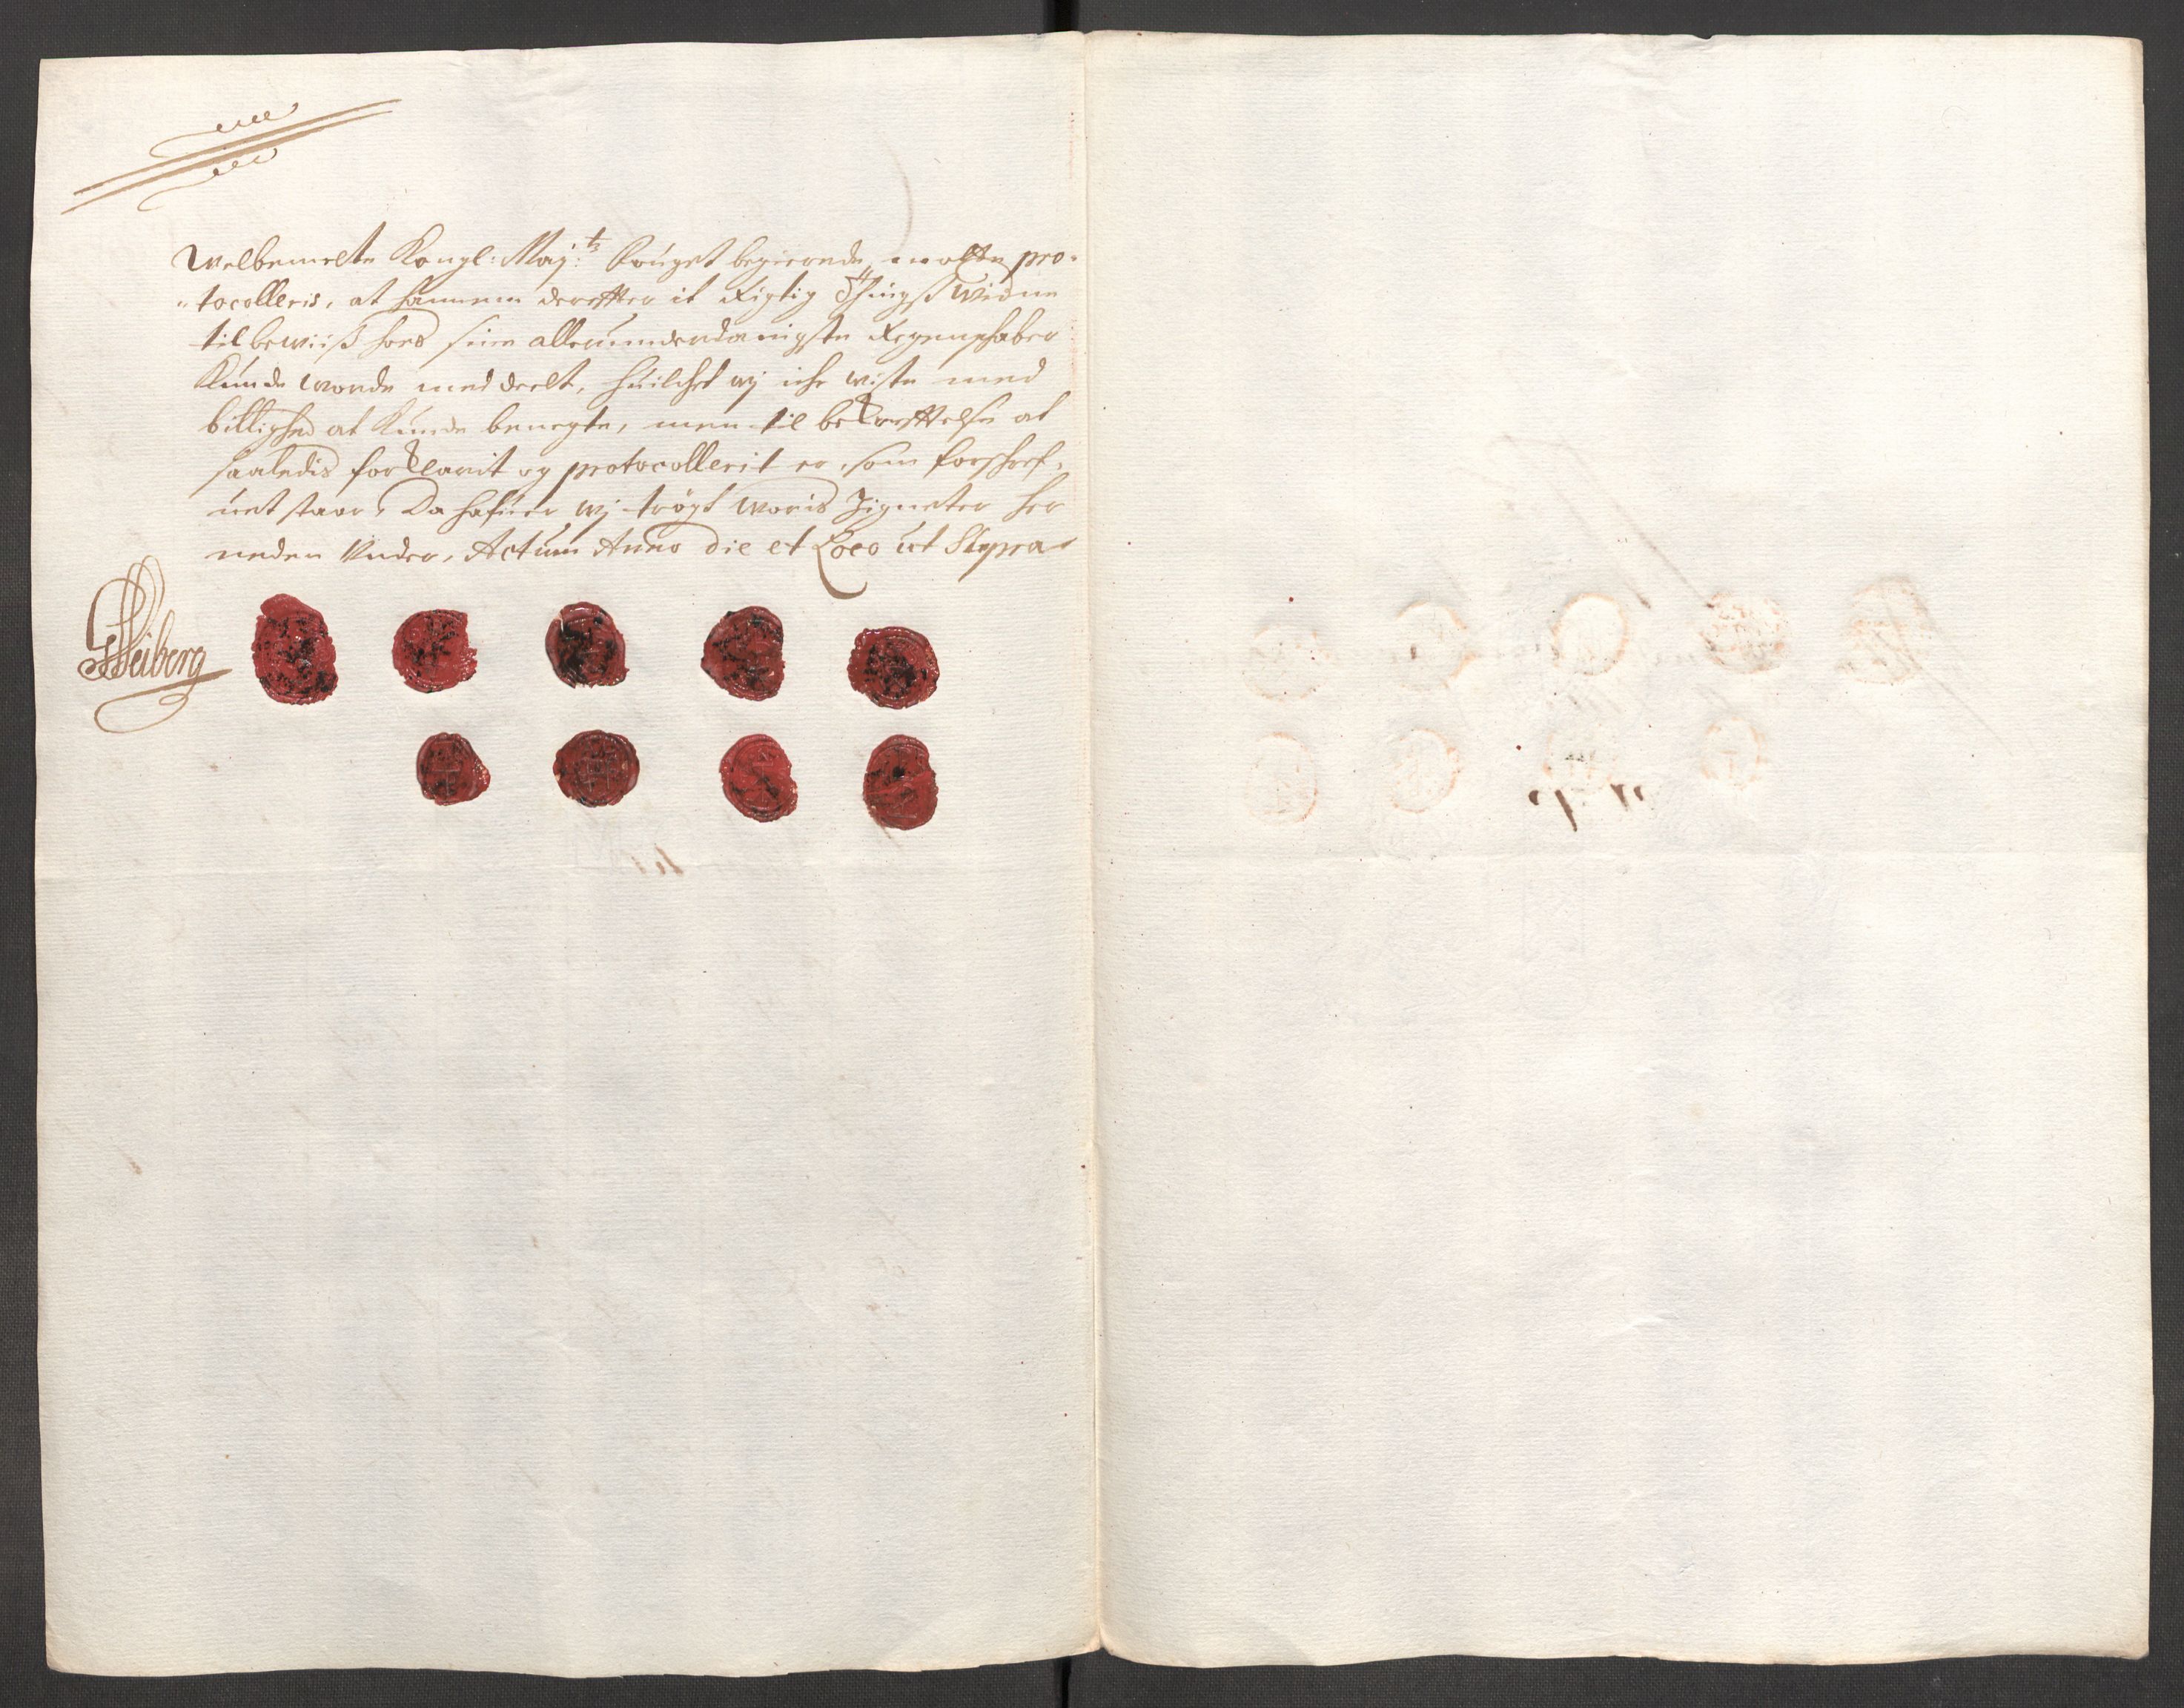 Welbemelte Kongl: Maj:ts Fouget begierede motte pro-
tocolleris, at hannem derefter it Rigtig Thingß Widne
til bewiiß hoes sine allerunderdanigste Regenschaber
Kunde worde meddeelt, huilchet wj iche wiste med
billighed at Kunde benegte, men til bekreftelse at
saaledis forklarit og protocollerit er, som forschref-
uet staar, Da hafuer wj trögt woris Zigneter her
neden Under, Actum Anno die et Loco ut Supra
Heiberg